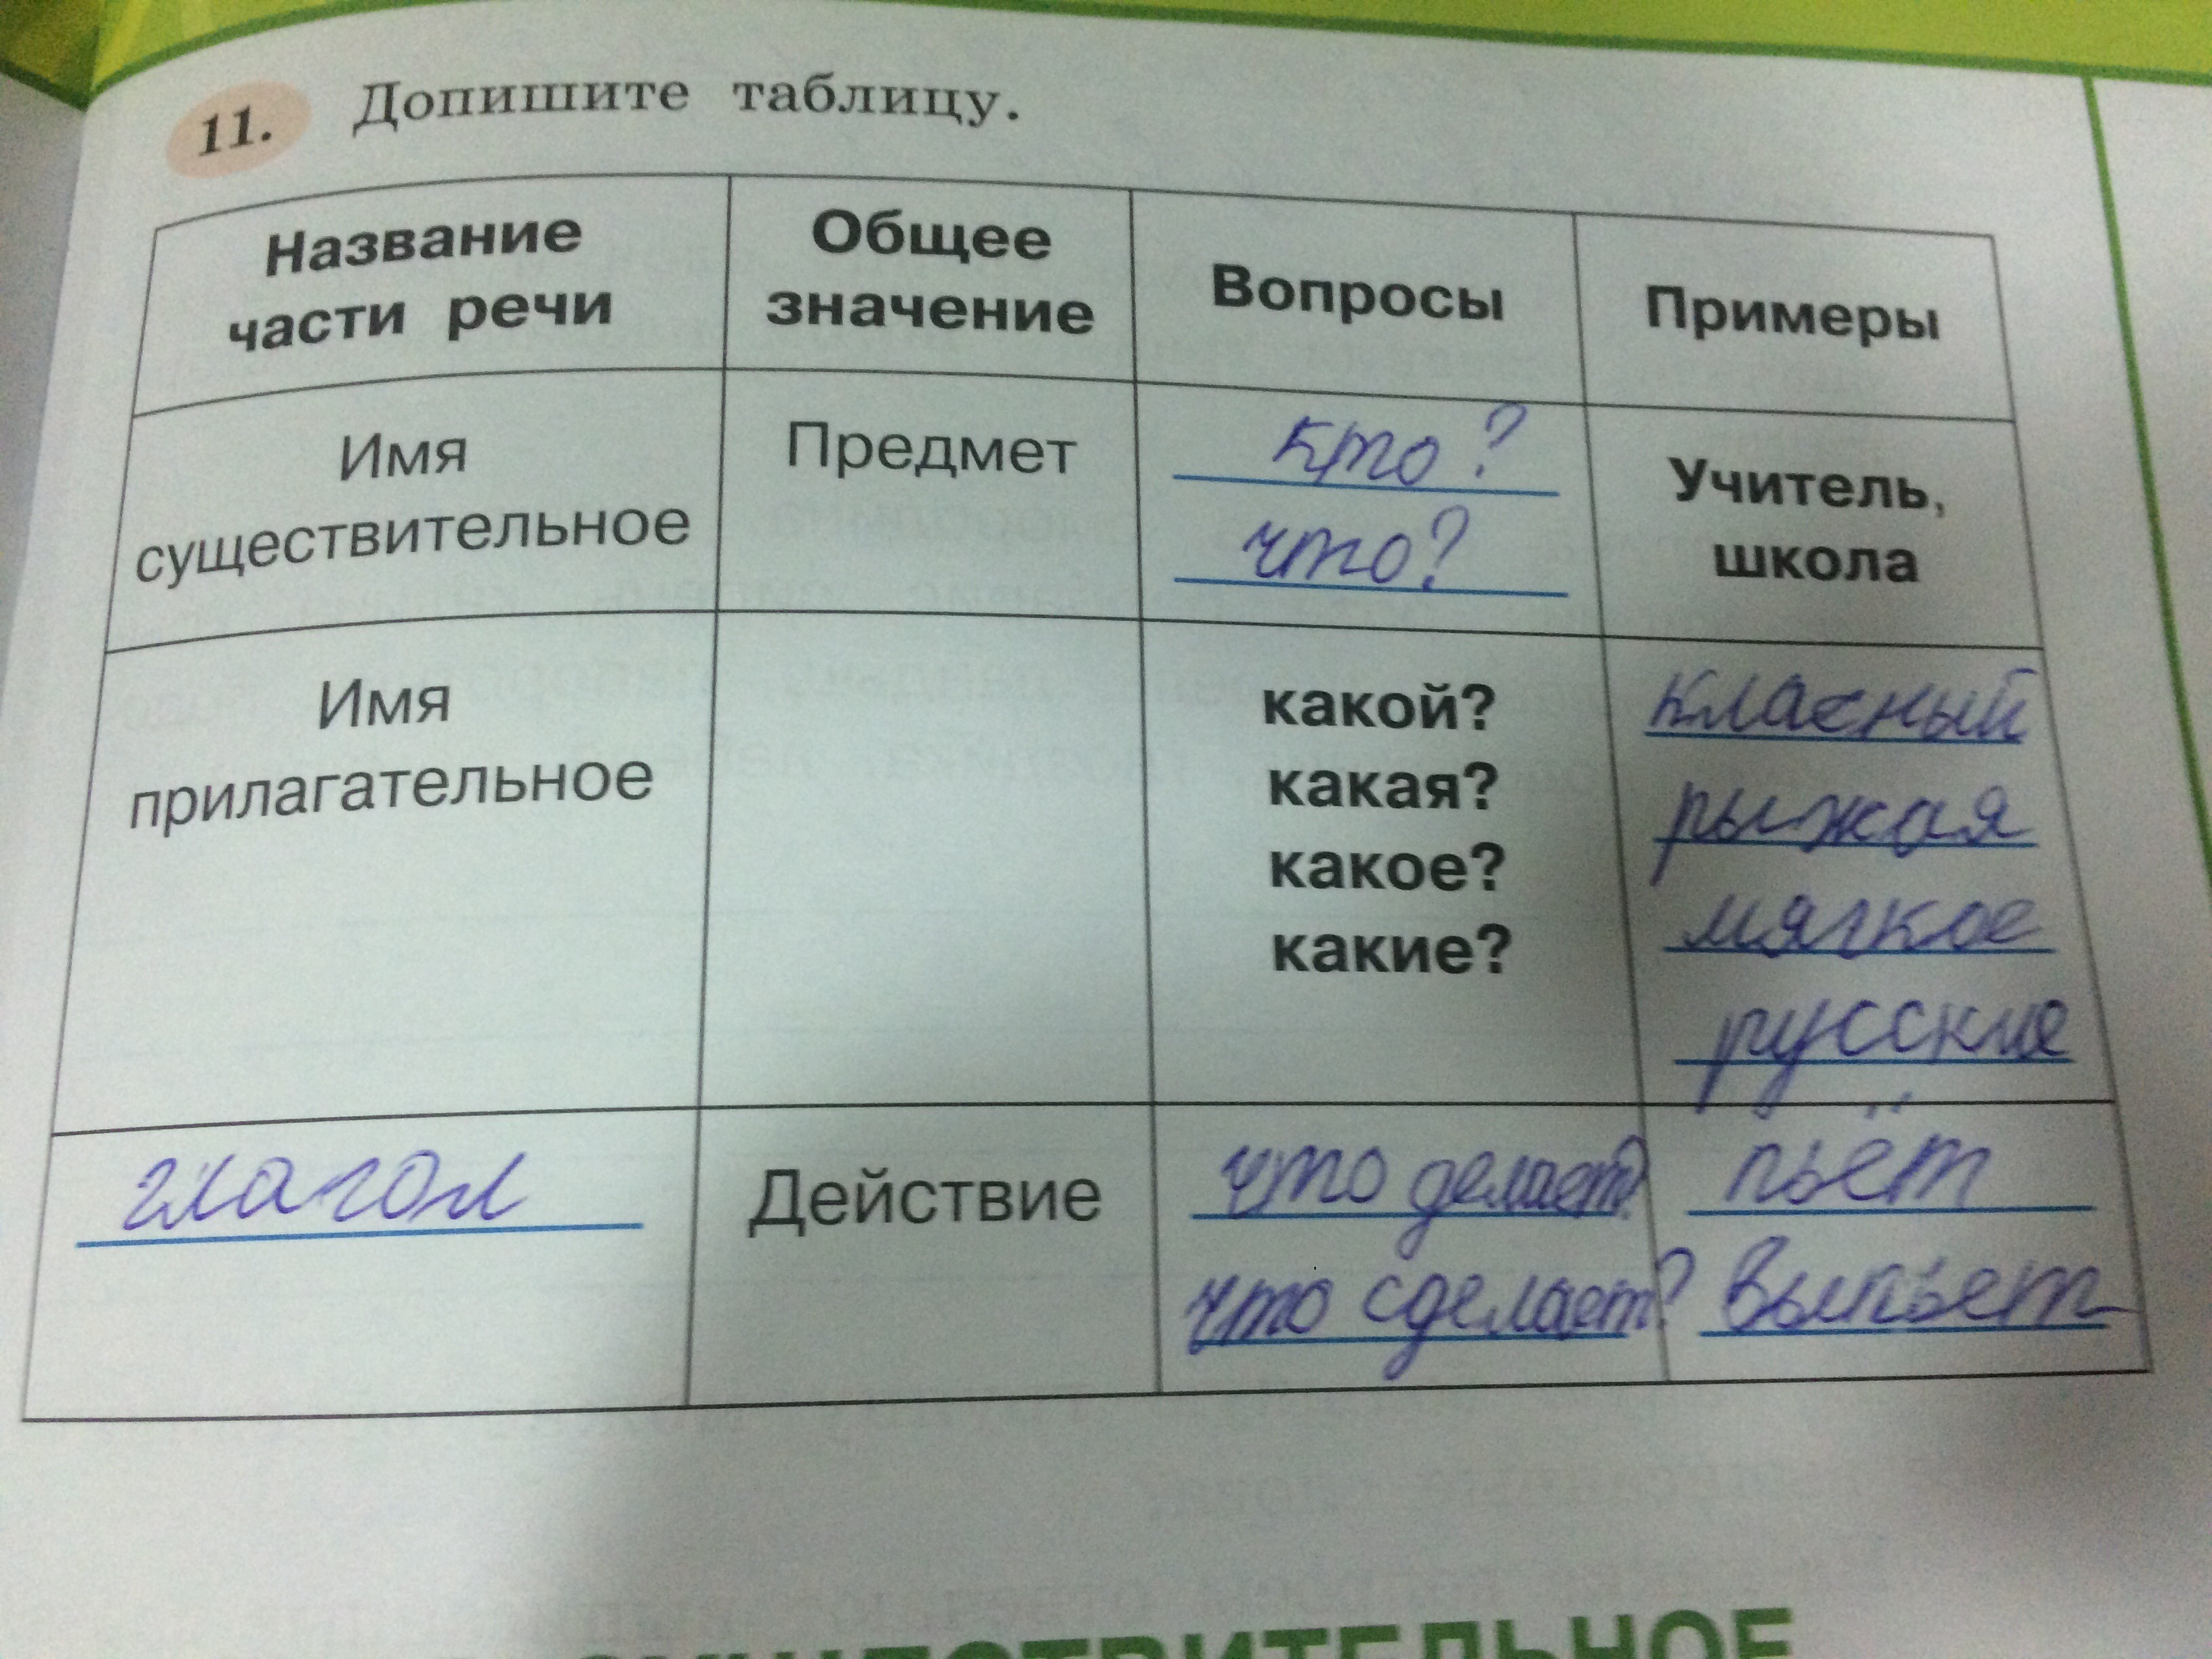 11. Допишите таблицу.
Название
части речи
Общее
значение
Вопросы
Примеры
Имя
существительное
Предмет
кто?
что?
Учитель,
школа
Имя
прилагательное
какой?
какая?
какое?
какие?
класный
рыжая
мягкое
русские
глагол
Действие
что делает?
что сделает?
пьёт
выпьет